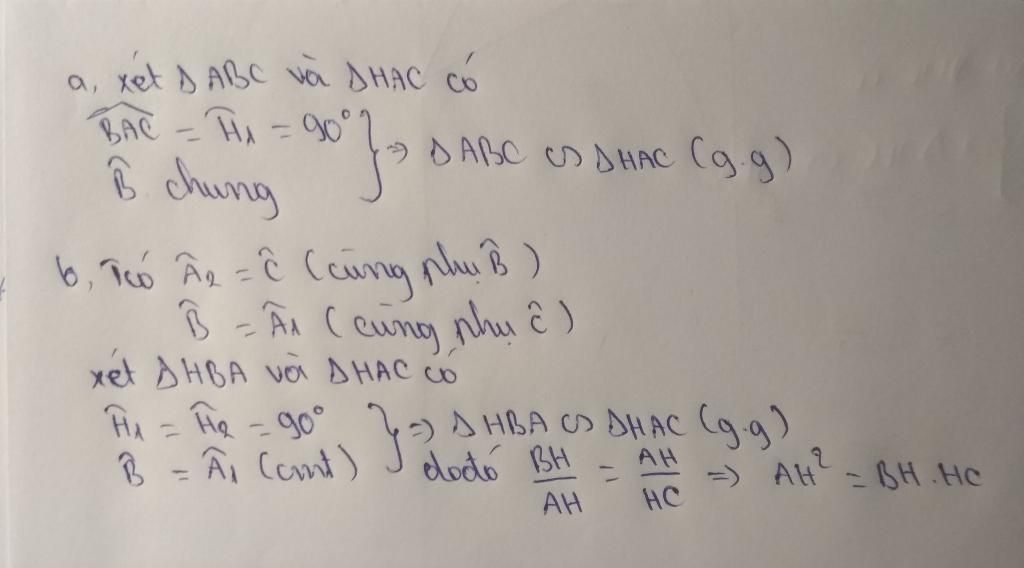 a, xét ΔABC và ΔHAC có
$\widehat{BAC} = \widehat{H}_1 = 90°$
$\widehat{B}$ chung } ⇒ ΔABC ∽ ΔHAC (g.g)
b, Tcó $\widehat{A}_2 = \widehat{C}$ (cùng phụ $\widehat{B}$)
$\widehat{B} = \widehat{A}_1$ (cùng phụ $\widehat{C}$)
xét ΔHBA và ΔHAC có
$\widehat{H}_1 = \widehat{H}_2 = 90°$ } ⇒ ΔHBA ∽ ΔHAC (g.g)
$\widehat{B} = \widehat{A}_1$ (cmt) do đó $\frac{BH}{AH} = \frac{AH}{HC}$ ⇒ $AH^2 = BH.HC$